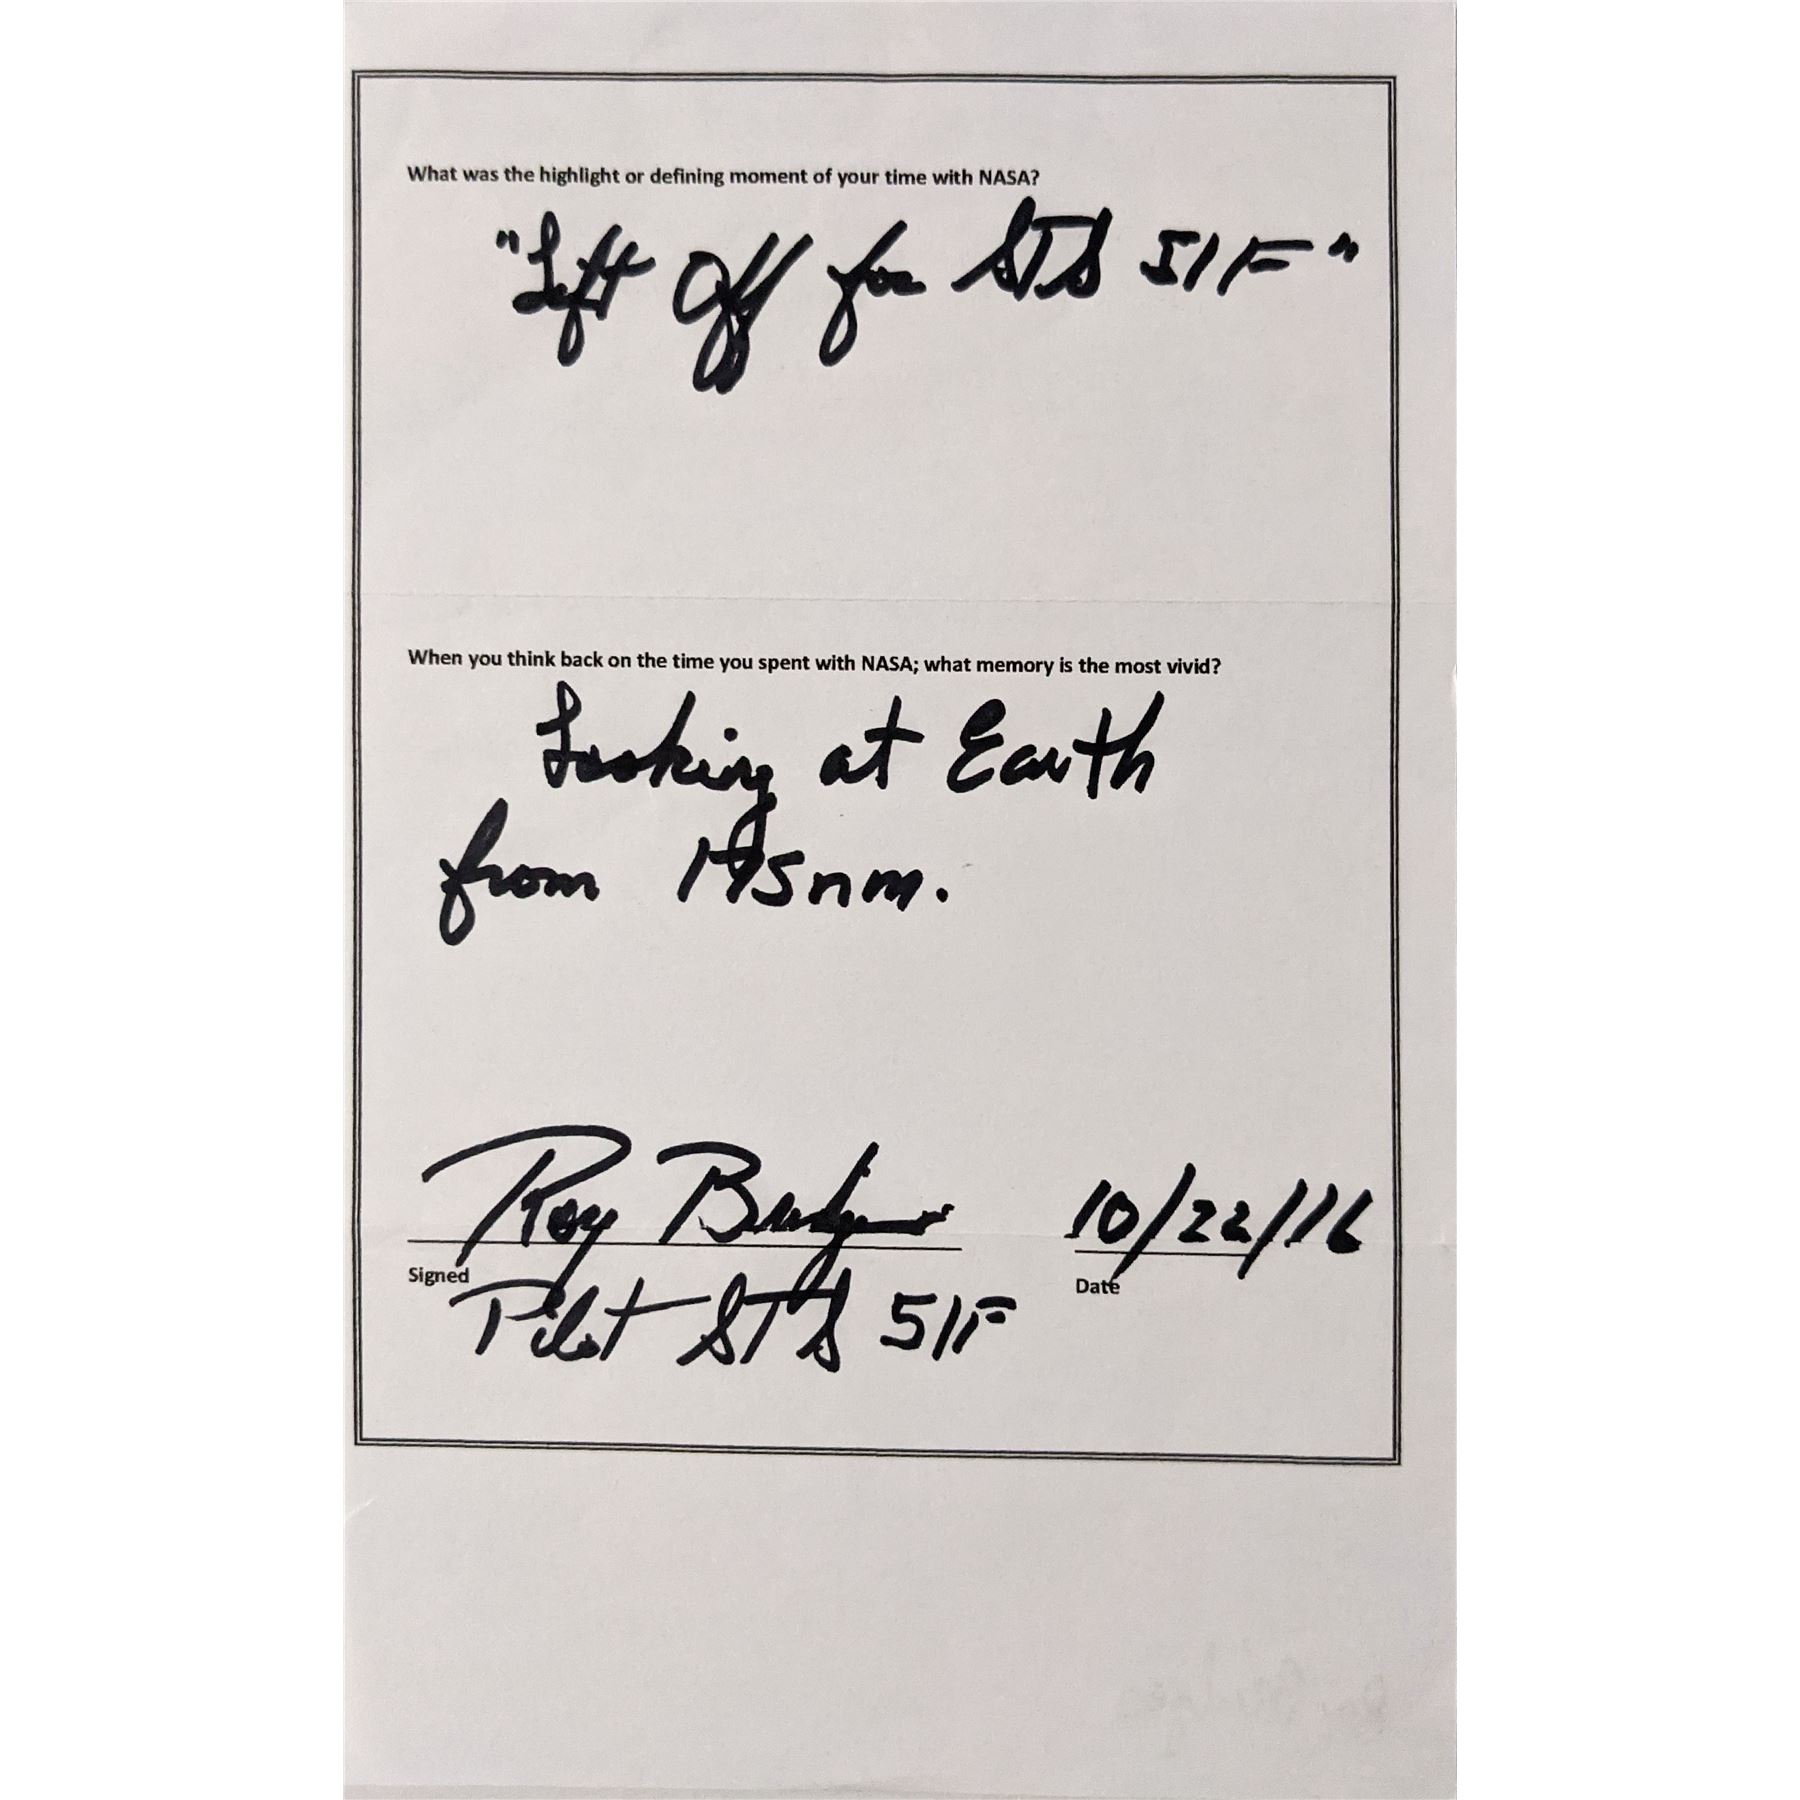 What was the highlight or defining moment of your time with NASA?
"Lift Off for STS 51F"
When you think back on the time you spent with NASA; what memory is the most vivid?
Looking at Earth
from 175nm.
Roy Bridges 10/22/16
Signed Date
Pilot STS 51F